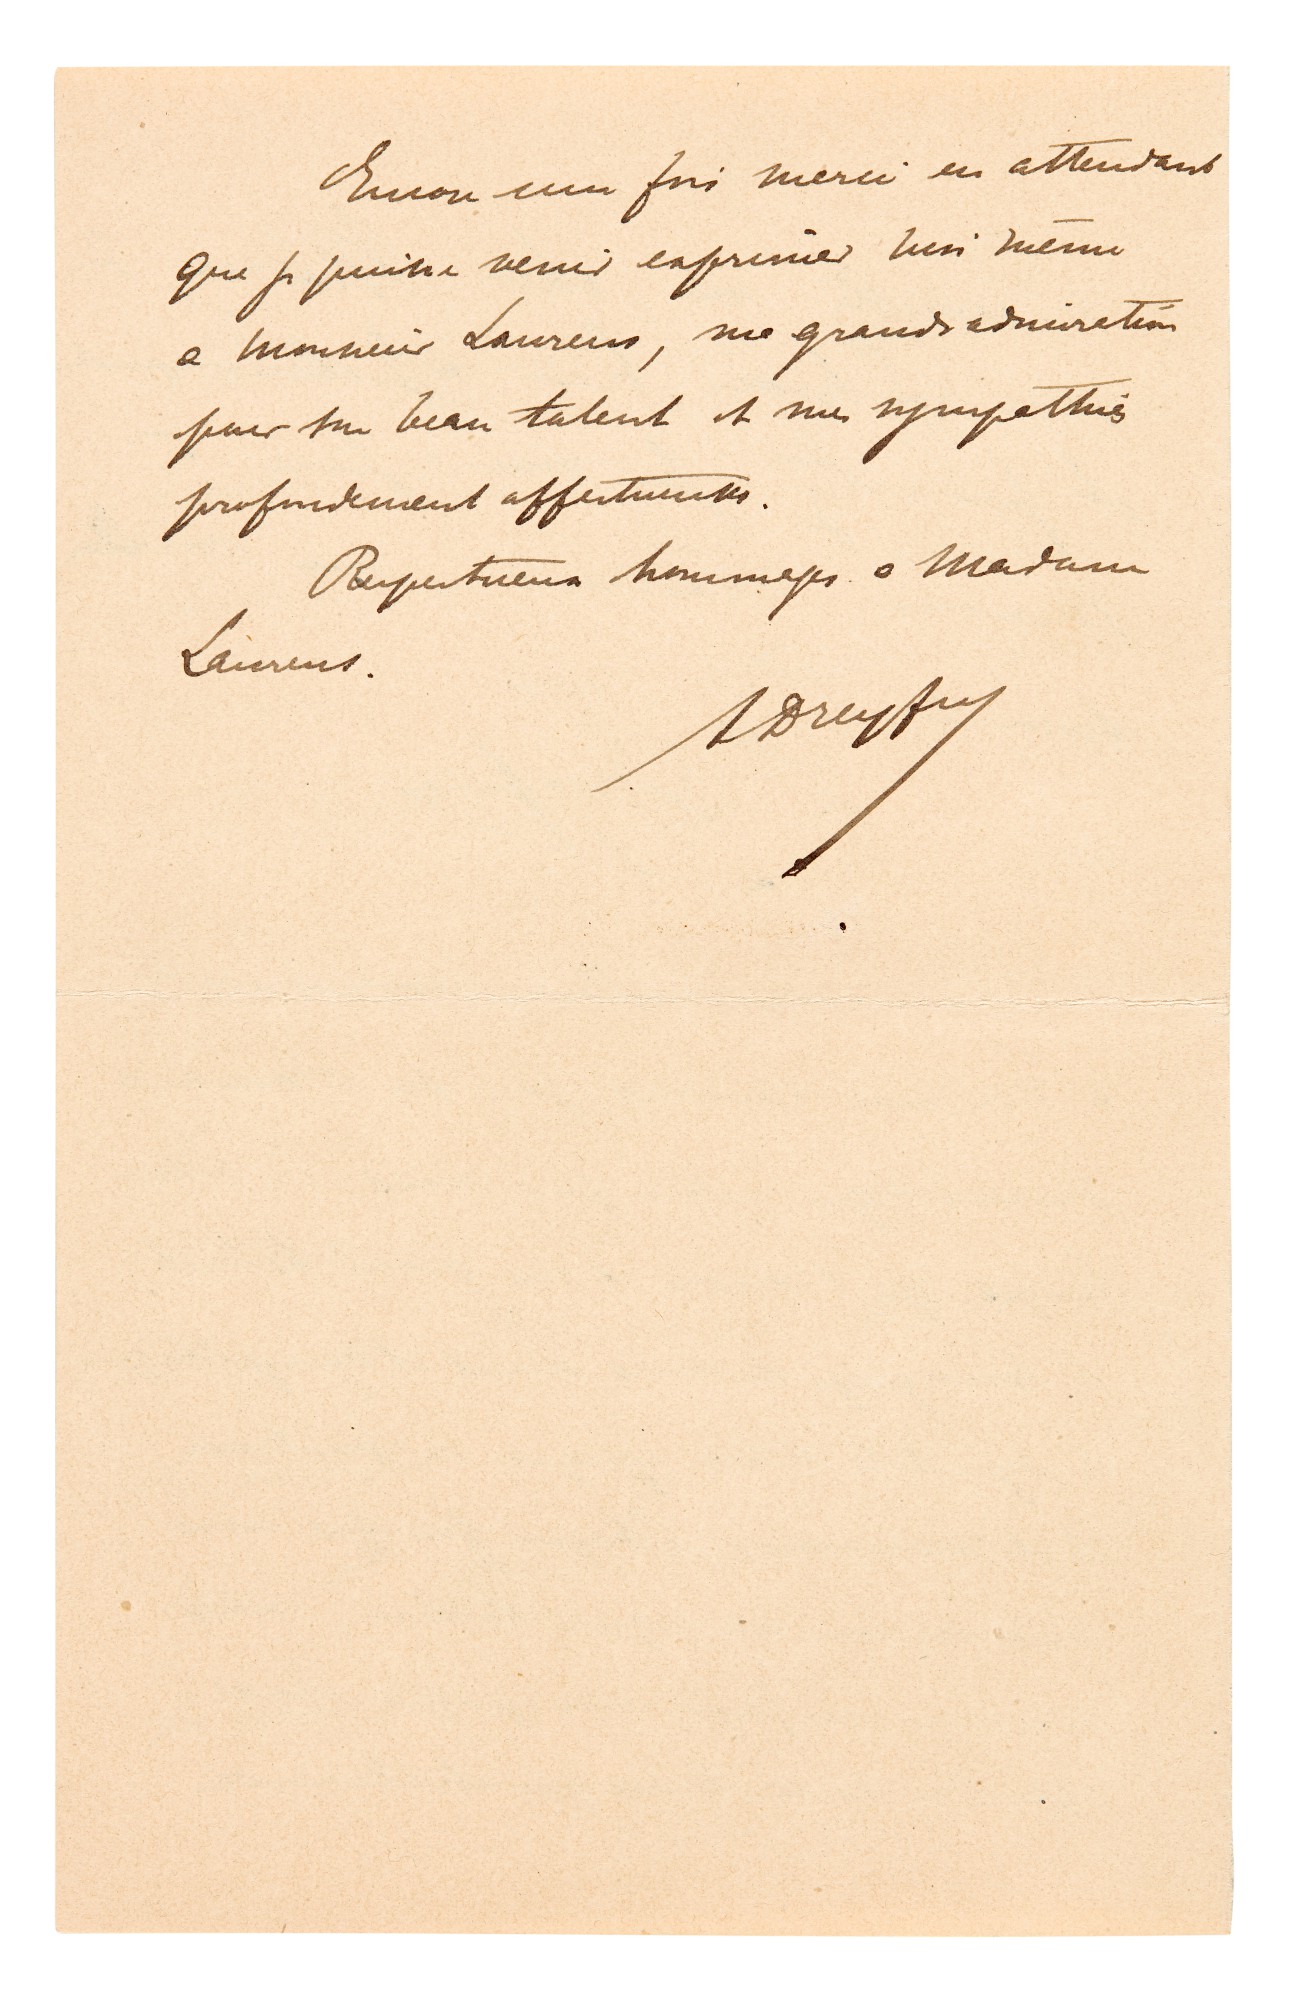 Encore une fois merci en attendant
que je puisse venir exprimer moi même
a Monsieur Laurens, ma grande admiration
pour son beau talent et mes sympathies
profondement affectueuses.
Respectueux hommages a Madame
Laurens.
A Dreyfus